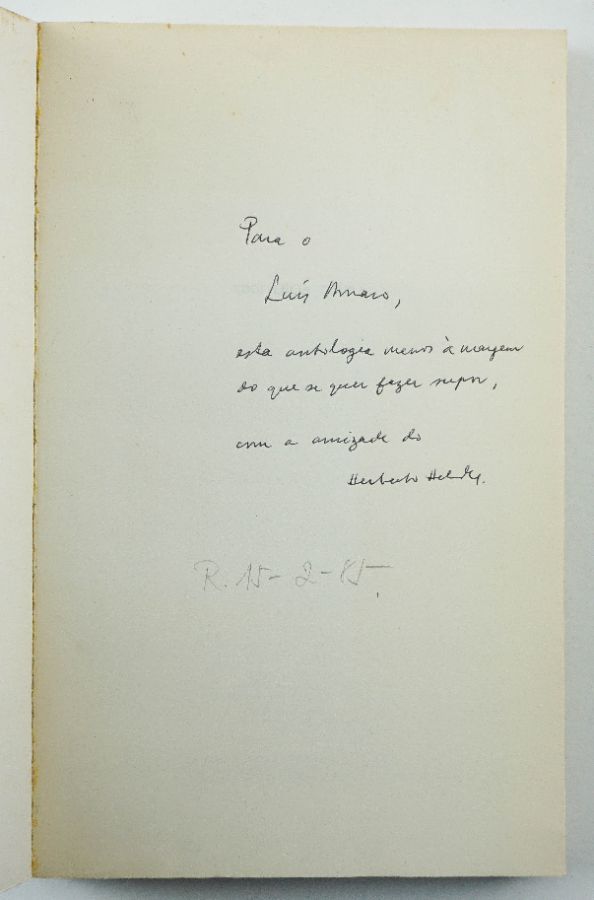 Para o
Luís Amaro,
esta antologia menos à margem
do que se quer fazer supor,
com a amizade do
Herberto Helder.
R. 15-2-85